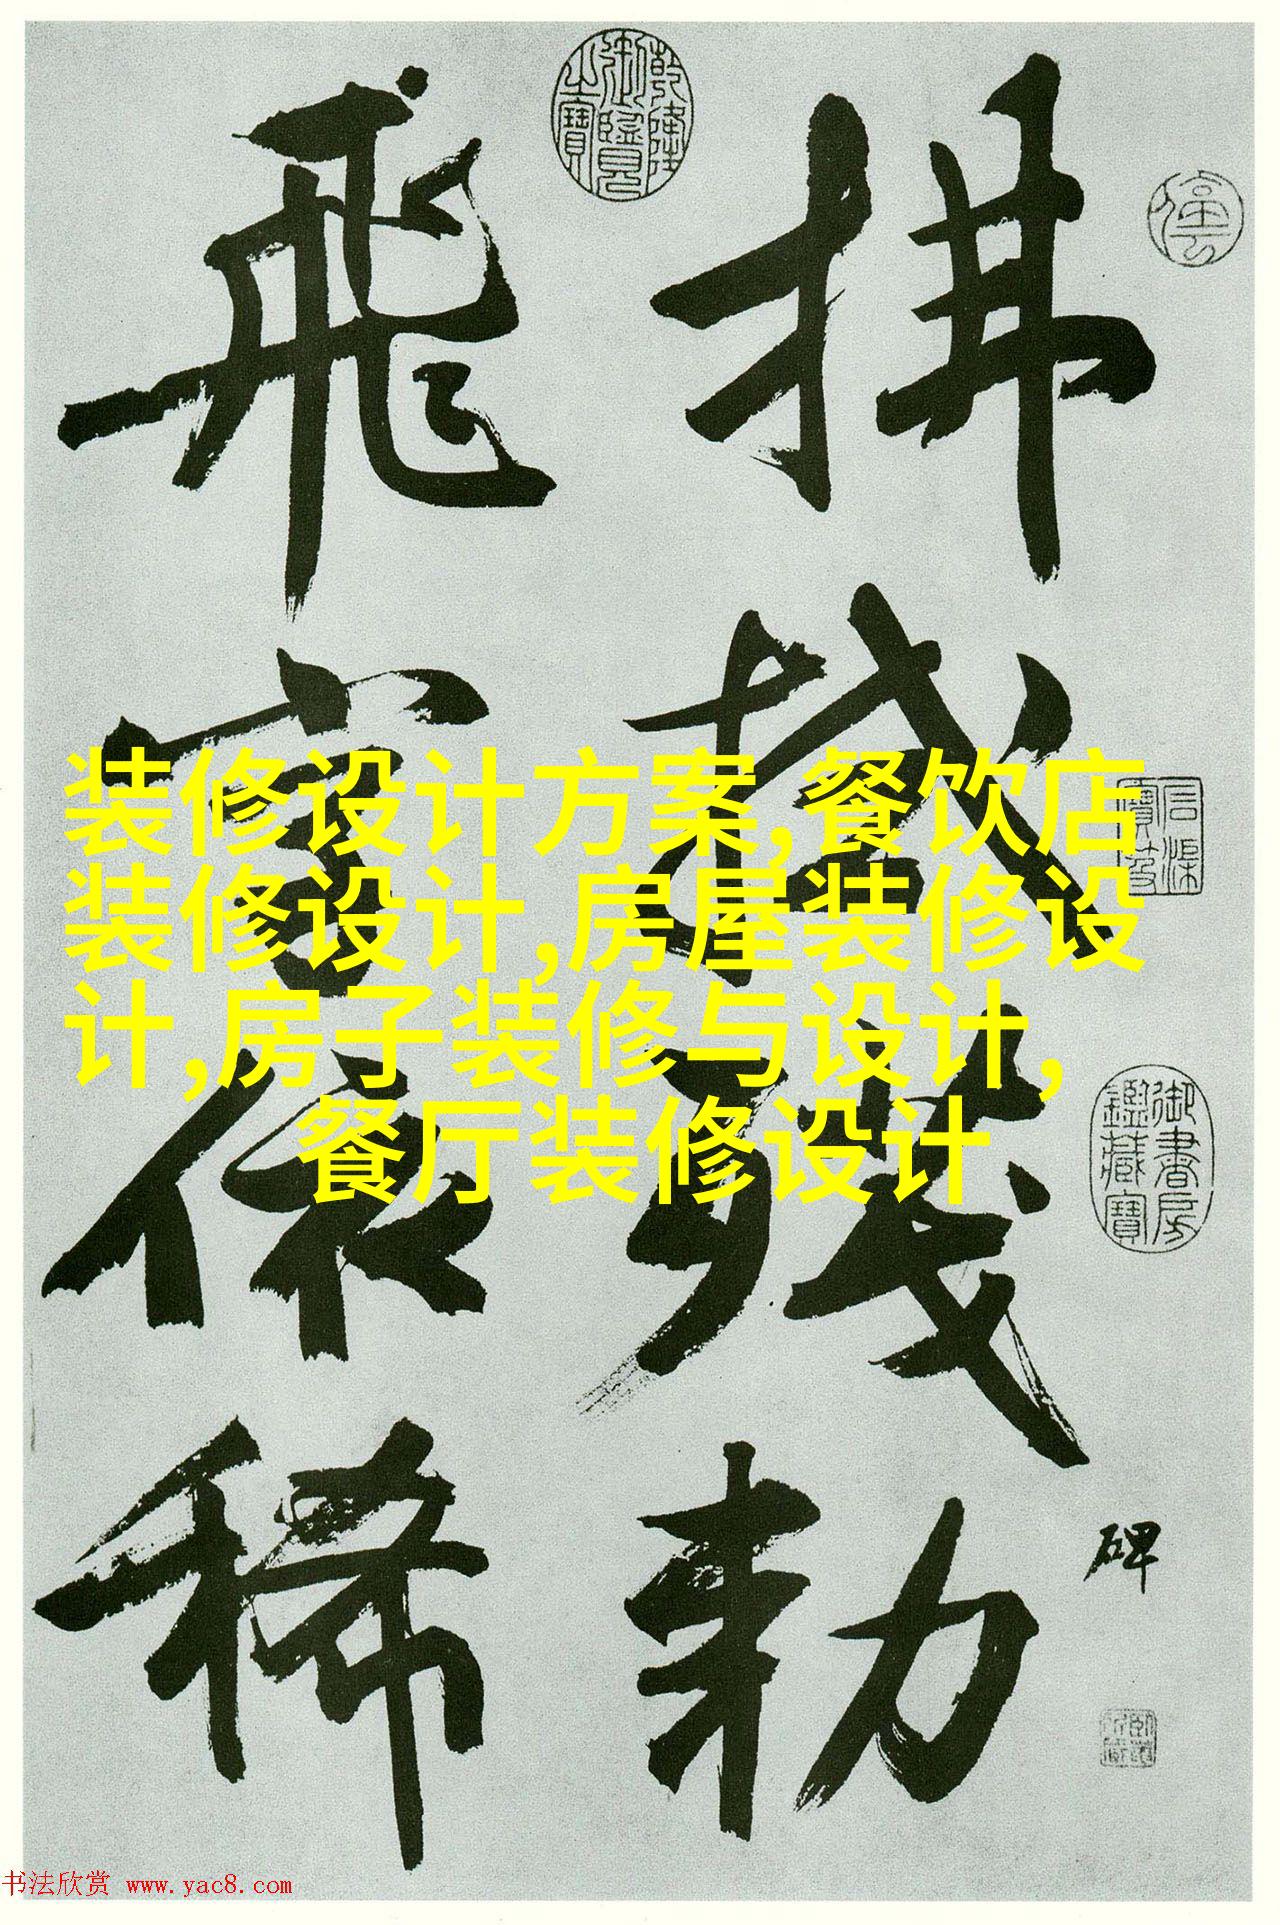 拂拭残勅
碑
飛字依稀
乾隆御覽之寶
停雲
石渠寶笈
御書房鑑藏寶
装修设计方案,餐饮店
装修设计,房屋装修设
计,房子装修与设计,
餐厅装修设计
书法欣赏 www.yac8.com